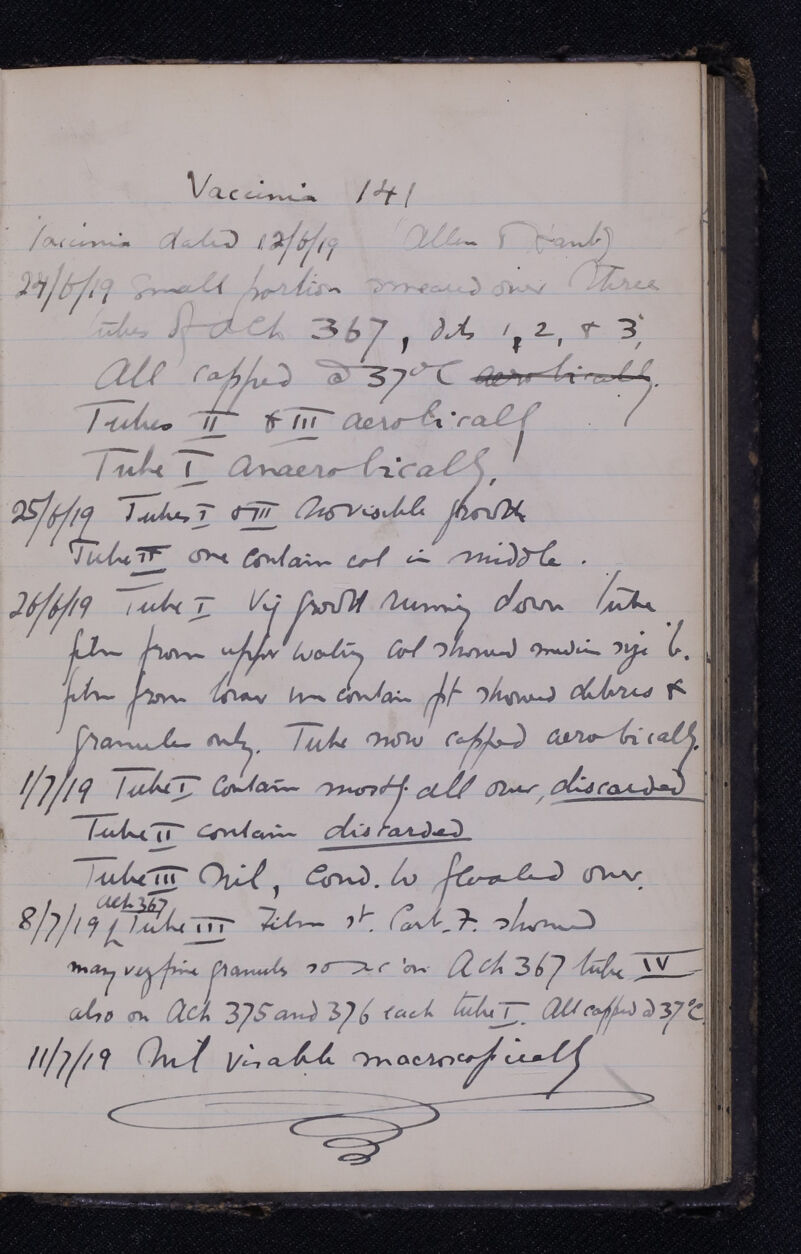 Vaccinia 141
Vaccinia dated 12/6/19 (Allen &
24/6/19 Small portion smeared over three
tubes of Ach 367, 1, 2, & 3,
All capped @ 37°C aerobically.
Tubes II & III aerobically
Tube I anaerobically.
25/6/19 Tubes I & III No visible growth
Tube II one contam col in middle.
26/6/19 Tube I Vig growth running down tube
film from upper col showed medium size b.
film from lower contam pt showed debris &
granules only. Tube now capped aerobically.
1/7/19 Tube I contam mostly all over, discarded
Tube II contam discarded
Tube III Nil, Cond. W floated over.
Ach 367
8/7/19 Tube III Film st. Carb. F. showed
many very fine granules so on Ach 367 tube IV
also on Ach 375 and 376 each tube I. All capped @ 37°C.
11/7/19 Nil visable macroscopically